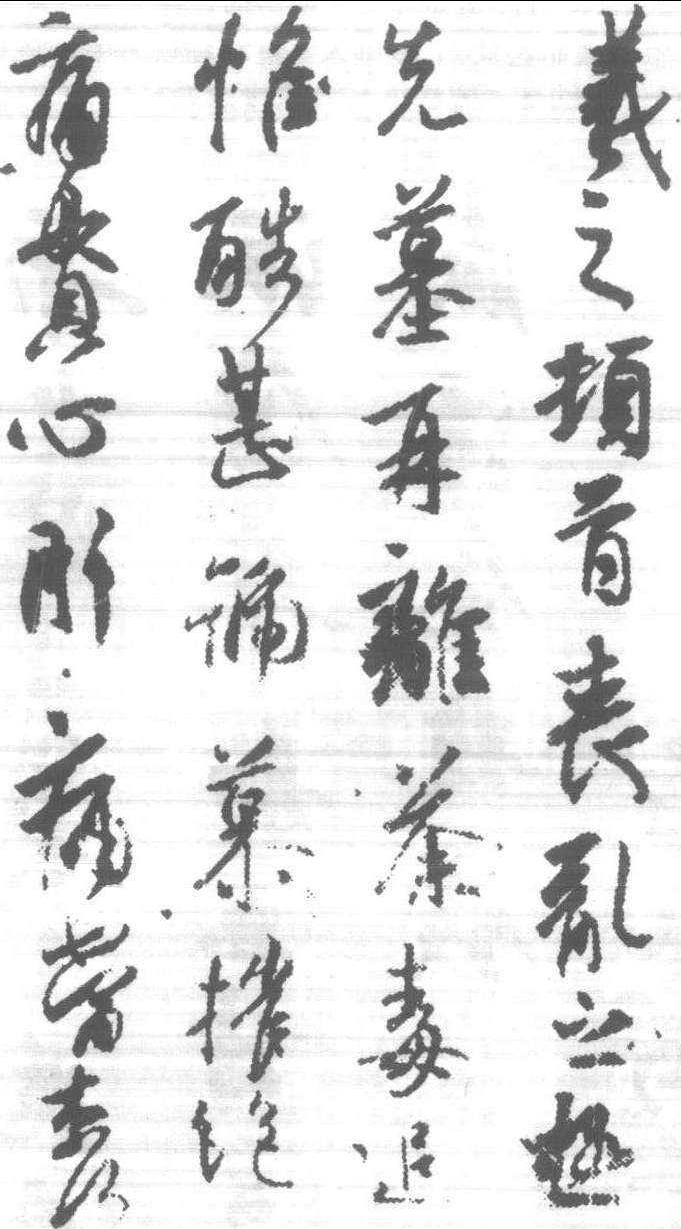 羲之頓首喪亂之極
先墓再離荼毒追
惟酷甚號慕摧絶
痛貫心肝痛當柰